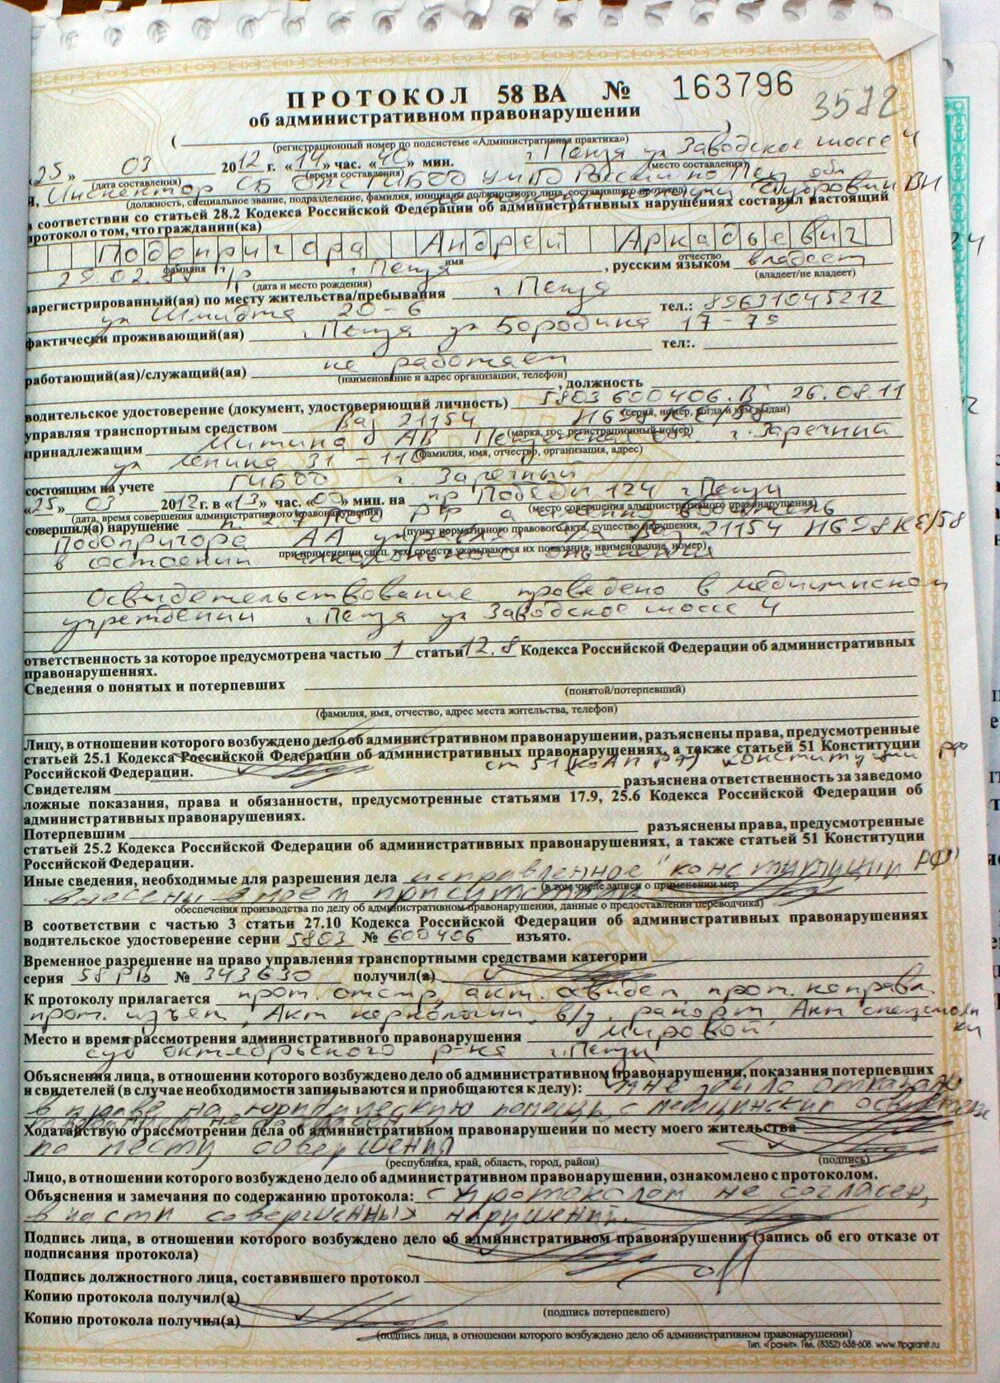 ПРОТОКОЛ 58 ВА № 163796
3572
об административном правонарушении
(регистрационный номер по подсистеме «Административная практика»)
«25» 03 2012 г. «14» час. «40» мин. г. Пенза ул Заводское шоссе 4
(дата составления) (время составления) (место составления)
Я, Инспектор СБ ДПС ГИБДД УМВД России по Пенз обл
(должность, специальное звание, подразделение, фамилия, инициалы должностного лица, составившего протокол)
в соответствии со статьей 28.2 Кодекса Российской Федерации об административных нарушениях составил настоящий
протокол о том, что гражданин(ка)
Подопригора Андрей Аркадьевич
фамилия имя отчество
г. Пенза , русским языком владеет
(дата и место рождения) (владеет/не владеет)
зарегистрированный(ая) по месту жительства/пребывания г Пенза
ул Шмидта 20-6 тел.: 89631045212
фактически проживающий(ая) г. Пенза ул Бородина 17-79
тел:.
работающий(ая)/служащий(ая) не работает
(наименование и адрес организации, телефон)
, должность
водительское удостоверение (документ, удостоверяющий личность) 5803600406.В 26.08.11
(серия, номер, когда и кем выдан)
управляя транспортным средством Ваз 21154
(марка, гос. регистрационный номер)
принадлежащим АВ г. Заречный
(фамилия, имя, отчество, организация, адрес)
ул Ленина 31 -
состоящим на учете ГИБДД г. Заречный
«25» 03 2012 г. в «13» час. «00» мин. на пр Победы 124 г. Пенза
(дата, время совершения административного правонарушения) (место совершения административного правонарушения)
совершил(а) нарушение п. 2.7 ПДД РФ водитель
(пункт нормативного правового акта, существо нарушения,
Подопригора АА 21154 Н628КЕ/58
при применении спец. тех. средств указываются их показания, наименование, номер)
в состоянии алкогольного опьянения
Освидетельствование проведено в медицинском
учреждении г. Пенза ул Заводское шоссе 4
ответственность за которое предусмотрена частью 1 статьи 12.8 Кодекса Российской Федерации об административных
правонарушениях.
Сведения о понятых и потерпевших
(понятой/потерпевший)
(фамилия, имя, отчество, адрес места жительства, телефон)
Лицу, в отношении которого возбуждено дело об административном правонарушении, разъяснены права, предусмотренные
статьей 25.1 Кодекса Российской Федерации об административных правонарушениях, а также статьей 51 Конституции
Российской Федерации. ст 51 (КоАП РФ) конституции РФ
Свидетелям разъяснена ответственность за заведомо
ложные показания, права и обязанности, предусмотренные статьями 17.9, 25.6 Кодекса Российской Федерации об
административных правонарушениях.
Потерпевшим разъяснены права, предусмотренные
статьей 25.2 Кодекса Российской Федерации об административных правонарушениях, а также статьей 51 Конституции
Российской Федерации.
Иные сведения, необходимые для разрешения дела исправленное "конституции РФ"
(в том числе записи о применении мер
внесены в моем присутствии
обеспечения производства по делу об административном правонарушении, данные о предоставлении переводчика)
В соответствии с частью 3 статьи 27.10 Кодекса Российской Федерации об административных правонарушениях
водительское удостоверение серии 5803 № 600406 изъято.
Временное разрешение на право управления транспортными средствами категории
серия 58 РВ № 343630 получил(а)
К протоколу прилагается прот. отстр, акт. освидет, прот. направл.
прот. изъят, Акт наркологии, в/у, рапорт, Акт спецстоянки
Место и время рассмотрения административного правонарушения Мировой
суд октябрьского р-на г. Пензы
Объяснения лица, в отношении которого возбуждено дело об административном правонарушении, показания потерпевших
и свидетелей (в случае необходимости записываются и приобщаются к делу): мне было отказано
в праве на юридическую помощь, с медицинским
Ходатайствую о рассмотрении дела об административном правонарушении по месту моего жительства
по месту совершения
(республика, край, область, город, район) (подпись)
Лицо, в отношении которого возбуждено дело об административном правонарушении, ознакомлено с протоколом.
Объяснения и замечания по содержанию протокола: с протоколом не согласен,
в части совершенных нарушений.
Подпись лица, в отношении которого возбуждено дело об административном правонарушении (запись об его отказе от
подписания протокола)
Подпись должностного лица, составившего протокол
Копию протокола получил(а)
(подпись потерпевшего)
Копию протокола получил(а)
(подпись лица, в отношении которого возбуждено дело об административном правонарушении)
Тип. «Гранит». Тел. (8352) 638-608. www.tipgranit.ru